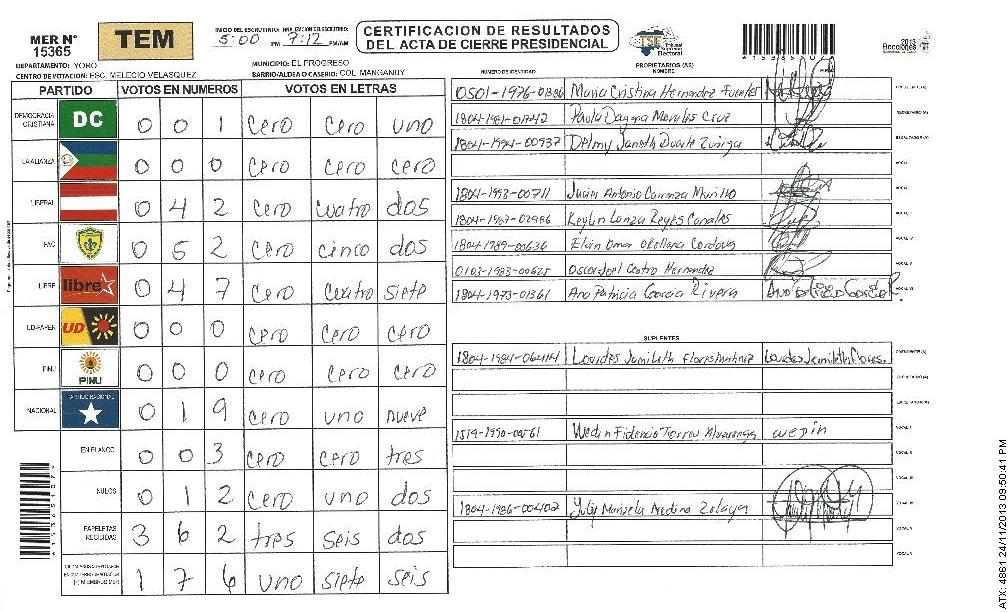 MER Nº 15365
TEM
INICIO DEL ESCRUTINIO: 5:00 PM
FINALIZACION DEL ESCRUTINIO: 7:12 PM/AM
CERTIFICACION DE RESULTADOS
DEL ACTA DE CIERRE PRESIDENCIAL
TSE Tribunal Supremo Electoral
2013
Elecciones
DEPARTAMENTO: YORO
MUNICIPIO: EL PROGRESO
CENTRO DE VOTACION: ESC. MELECIO VELASQUEZ
BARRIO/ALDEA O CASERIO: COL. MANGANDY
PARTIDO VOTOS EN NUMEROS VOTOS EN LETRAS
DEMOCRACIA CRISTIANA DC 0 0 1 cero cero uno
LA ALIANZA 0 0 0 cero cero cero
LIBERAL 0 4 2 cero cuatro dos
PAC 0 5 2 cero cinco dos
LIBRE libre 0 4 7 cero cuatro siete
UD-FAPER UD 0 0 0 cero cero cero
PINU PINU 0 0 0 cero cero cero
NACIONAL PARTIDO NACIONAL 0 1 9 cero uno nueve
EN BLANCO 0 0 3 cero cero tres
NULOS 0 1 2 cero uno dos
PAPELETAS RECIBIDAS 3 6 2 tres seis dos
1 7 6 uno siete seis
PROPIETARIOS (AS)
NUMERO DE IDENTIDAD NOMBRE FIRMA
0501-1976-01386 Maria Cristina Hernandez Fuentes
1804-1981-01742 Paula Dayana Morales Cruz
1804-1994-00937 Delmy Janeth Duarte Zuniga
1804-1993-00711 Junior Antonio Carranza Murillo
1804-1967-02986 Keylin Lanza Reyes Canales
1804-1989-00636 Elvin Omar Orellana Cordova
0103-1983-00625 Oscar Joel Castro Hernandez
1804-1973-01361 Ana Patricia Garcia Rivera
SUPLENTES
1804-1984-06414 Lourdes Jamileth Flores Martinez Lourdes Jamileth Flores
1519-1990-00561 Wedin Fidencio Torres Alvarenga wedin
1804-1986-00402 July Marisela Medina Zelaya
ATX: 4861 24/11/2013 09:50:41 PM